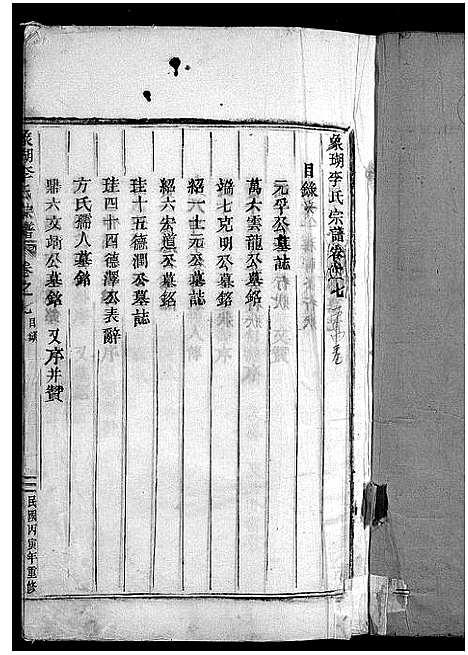 象瑚李氏宗譜卷之七
目錄
元孚公墓誌
萬六雲龍公墓銘
端七克明公墓銘
紹一士元公墓誌
紹六宏道公墓銘
珪十五德潤公墓誌
珪四十四德澤公表辭
方氏孺人墓銘
鼎六文炳公墓銘 又序并贊
象瑚李氏宗譜 卷之七 目錄
民國丙寅年重修